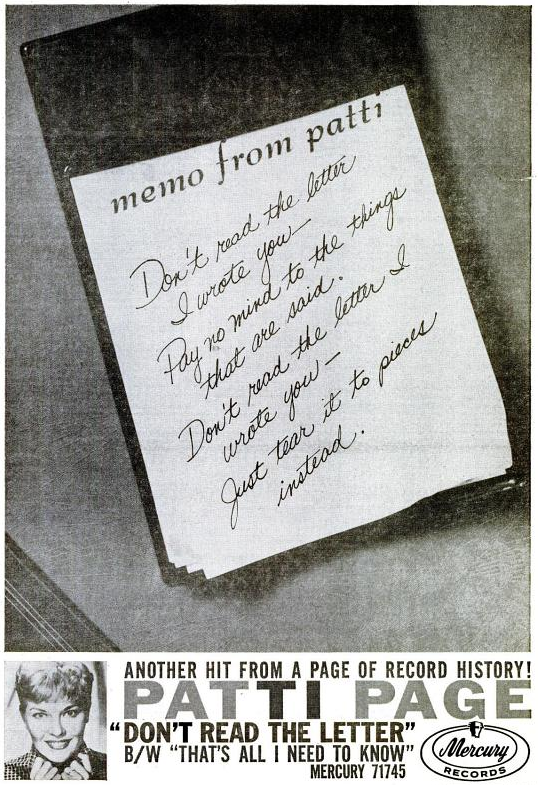 memo from patti
Don't read the letter
I wrote you—
Pay no mind to the things
that are said.
Don't read the letter I
wrote you—
Just tear it to pieces
instead.
ANOTHER HIT FROM A PAGE OF RECORD HISTORY!
PATTI PAGE
"DON'T READ THE LETTER"
B/W "THAT'S ALL I NEED TO KNOW"
MERCURY 71745
Mercury
RECORDS